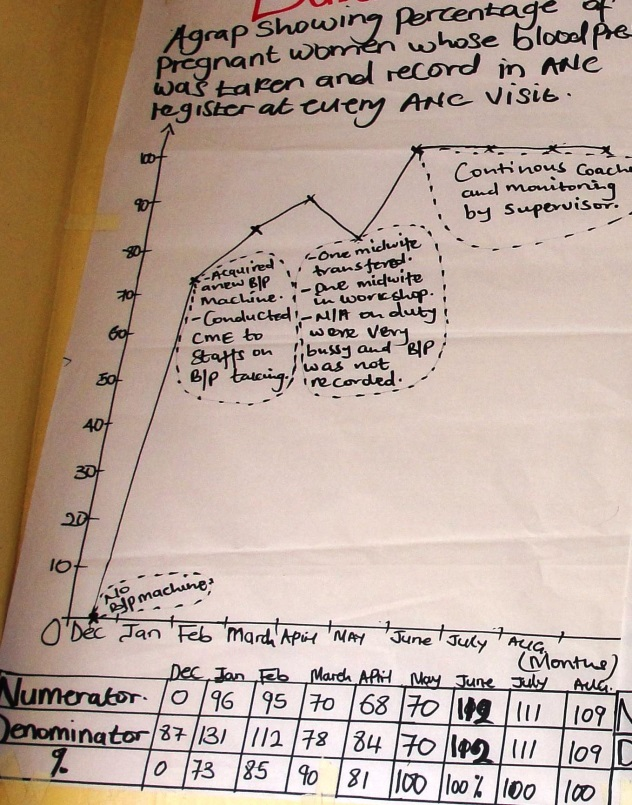 A grap Showing Percentage of
Pregnant women whose blood Pre
was taken and record in ANC
register at every ANC Visit.
100
90
80
70
60
50
40
30
20
10
0
- Acquired
a new B/P
machine.
- Conducted
CME to
Staffs on
B/P taking.
- One midwife
transfered.
- One midwife
in workshop.
- N/A on duty
were very
bussy and B/P
was not
recorded.
Continous Coach
and monitoring
by Supervisor.
No
B/P machine
Dec Jan Feb March April MAY June July AUG.
(Months)
Dec Jan Feb March April May June July Aug.
Numerator. 0 96 95 70 68 70 111 109
Denominator 87 131 112 78 84 70 111 109
% 0 73 85 90 81 100 100% 100 100